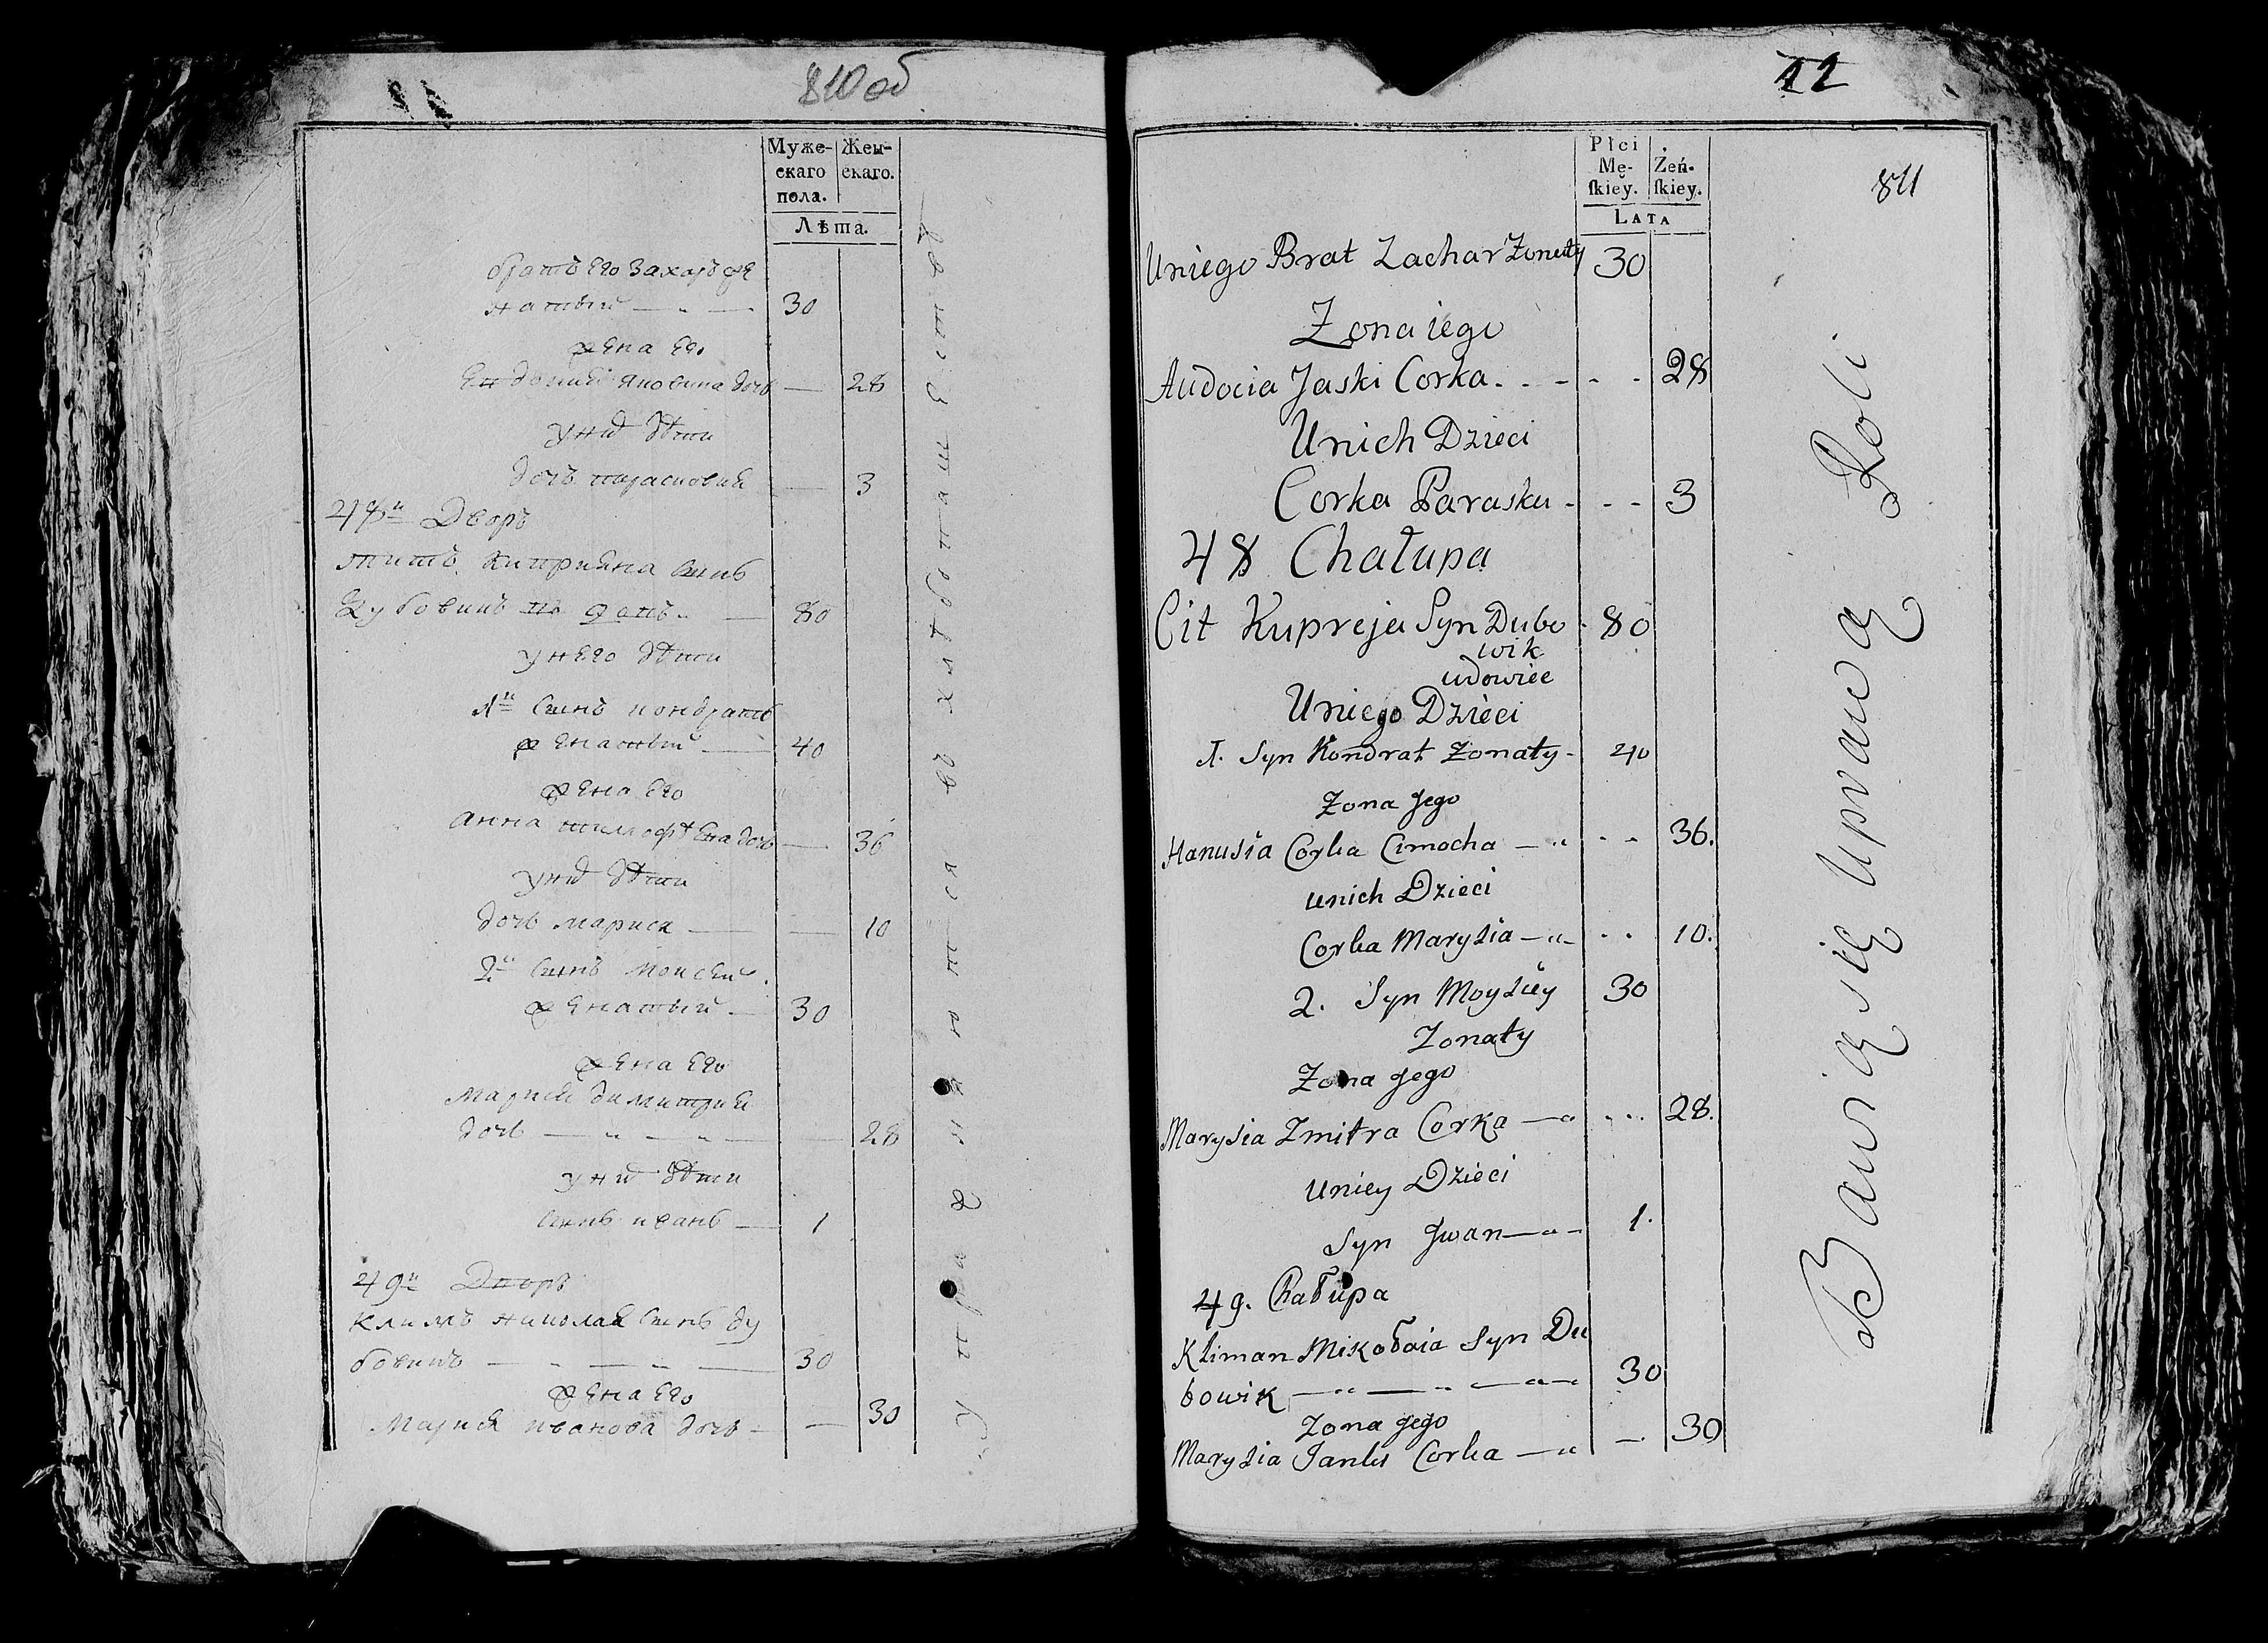 810 об
Муже-
скаго
пола.
Жен-
скаго.
Лѣта.
братъ его Захаръ же
натый 30
жена его
Евдокия Яковлева дочь 28
у них дѣти
дочь парасковия 3
48й Дворъ
титъ Киприяна сынъ
Дубовикъ 80
у него дѣти
1й сынъ кондратъ
женатый 40
жена его
анна тимофѣева дочь 36
у них дѣти
дочь мариса 10
2й сынъ моисей
женатый 30
жена его
мария димитрия
дочь 28
у них дѣти
сынъ иванъ 1
49й Дворъ
климъ николая сынъ ду
бовикъ 30
жена его
Мария иванова дочь 30
42
811
Płci
Mę-
ſkiey.
Żeń-
ſkiey.
LATA
Uniego Brat Zachar Zonaty 30
Zona iego
Audocia Jaski Corka 28
Unich Dzieci
Corka Paraska 3
48 Chałupa
Cit Kupreja Syn Dubo 80
wik
udowiec
Uniego Dzieci
1. Syn Kondrat Zonaty 40
Zona Jego
Hanusia Corka Cimocha 36.
unich Dzieci
Corka Marysia 10.
2. Syn Moysiey 30
Zonaty
Zona Jego
Marysia Zmitra Corka 28.
Uniey Dzieci
Syn Jwan 1.
49. Chałupa
Kliman Mikołaia Syn Du
bowik 30
Zona Jego
Marysia Janki Corka 30
Bawią się Uprawą Roli